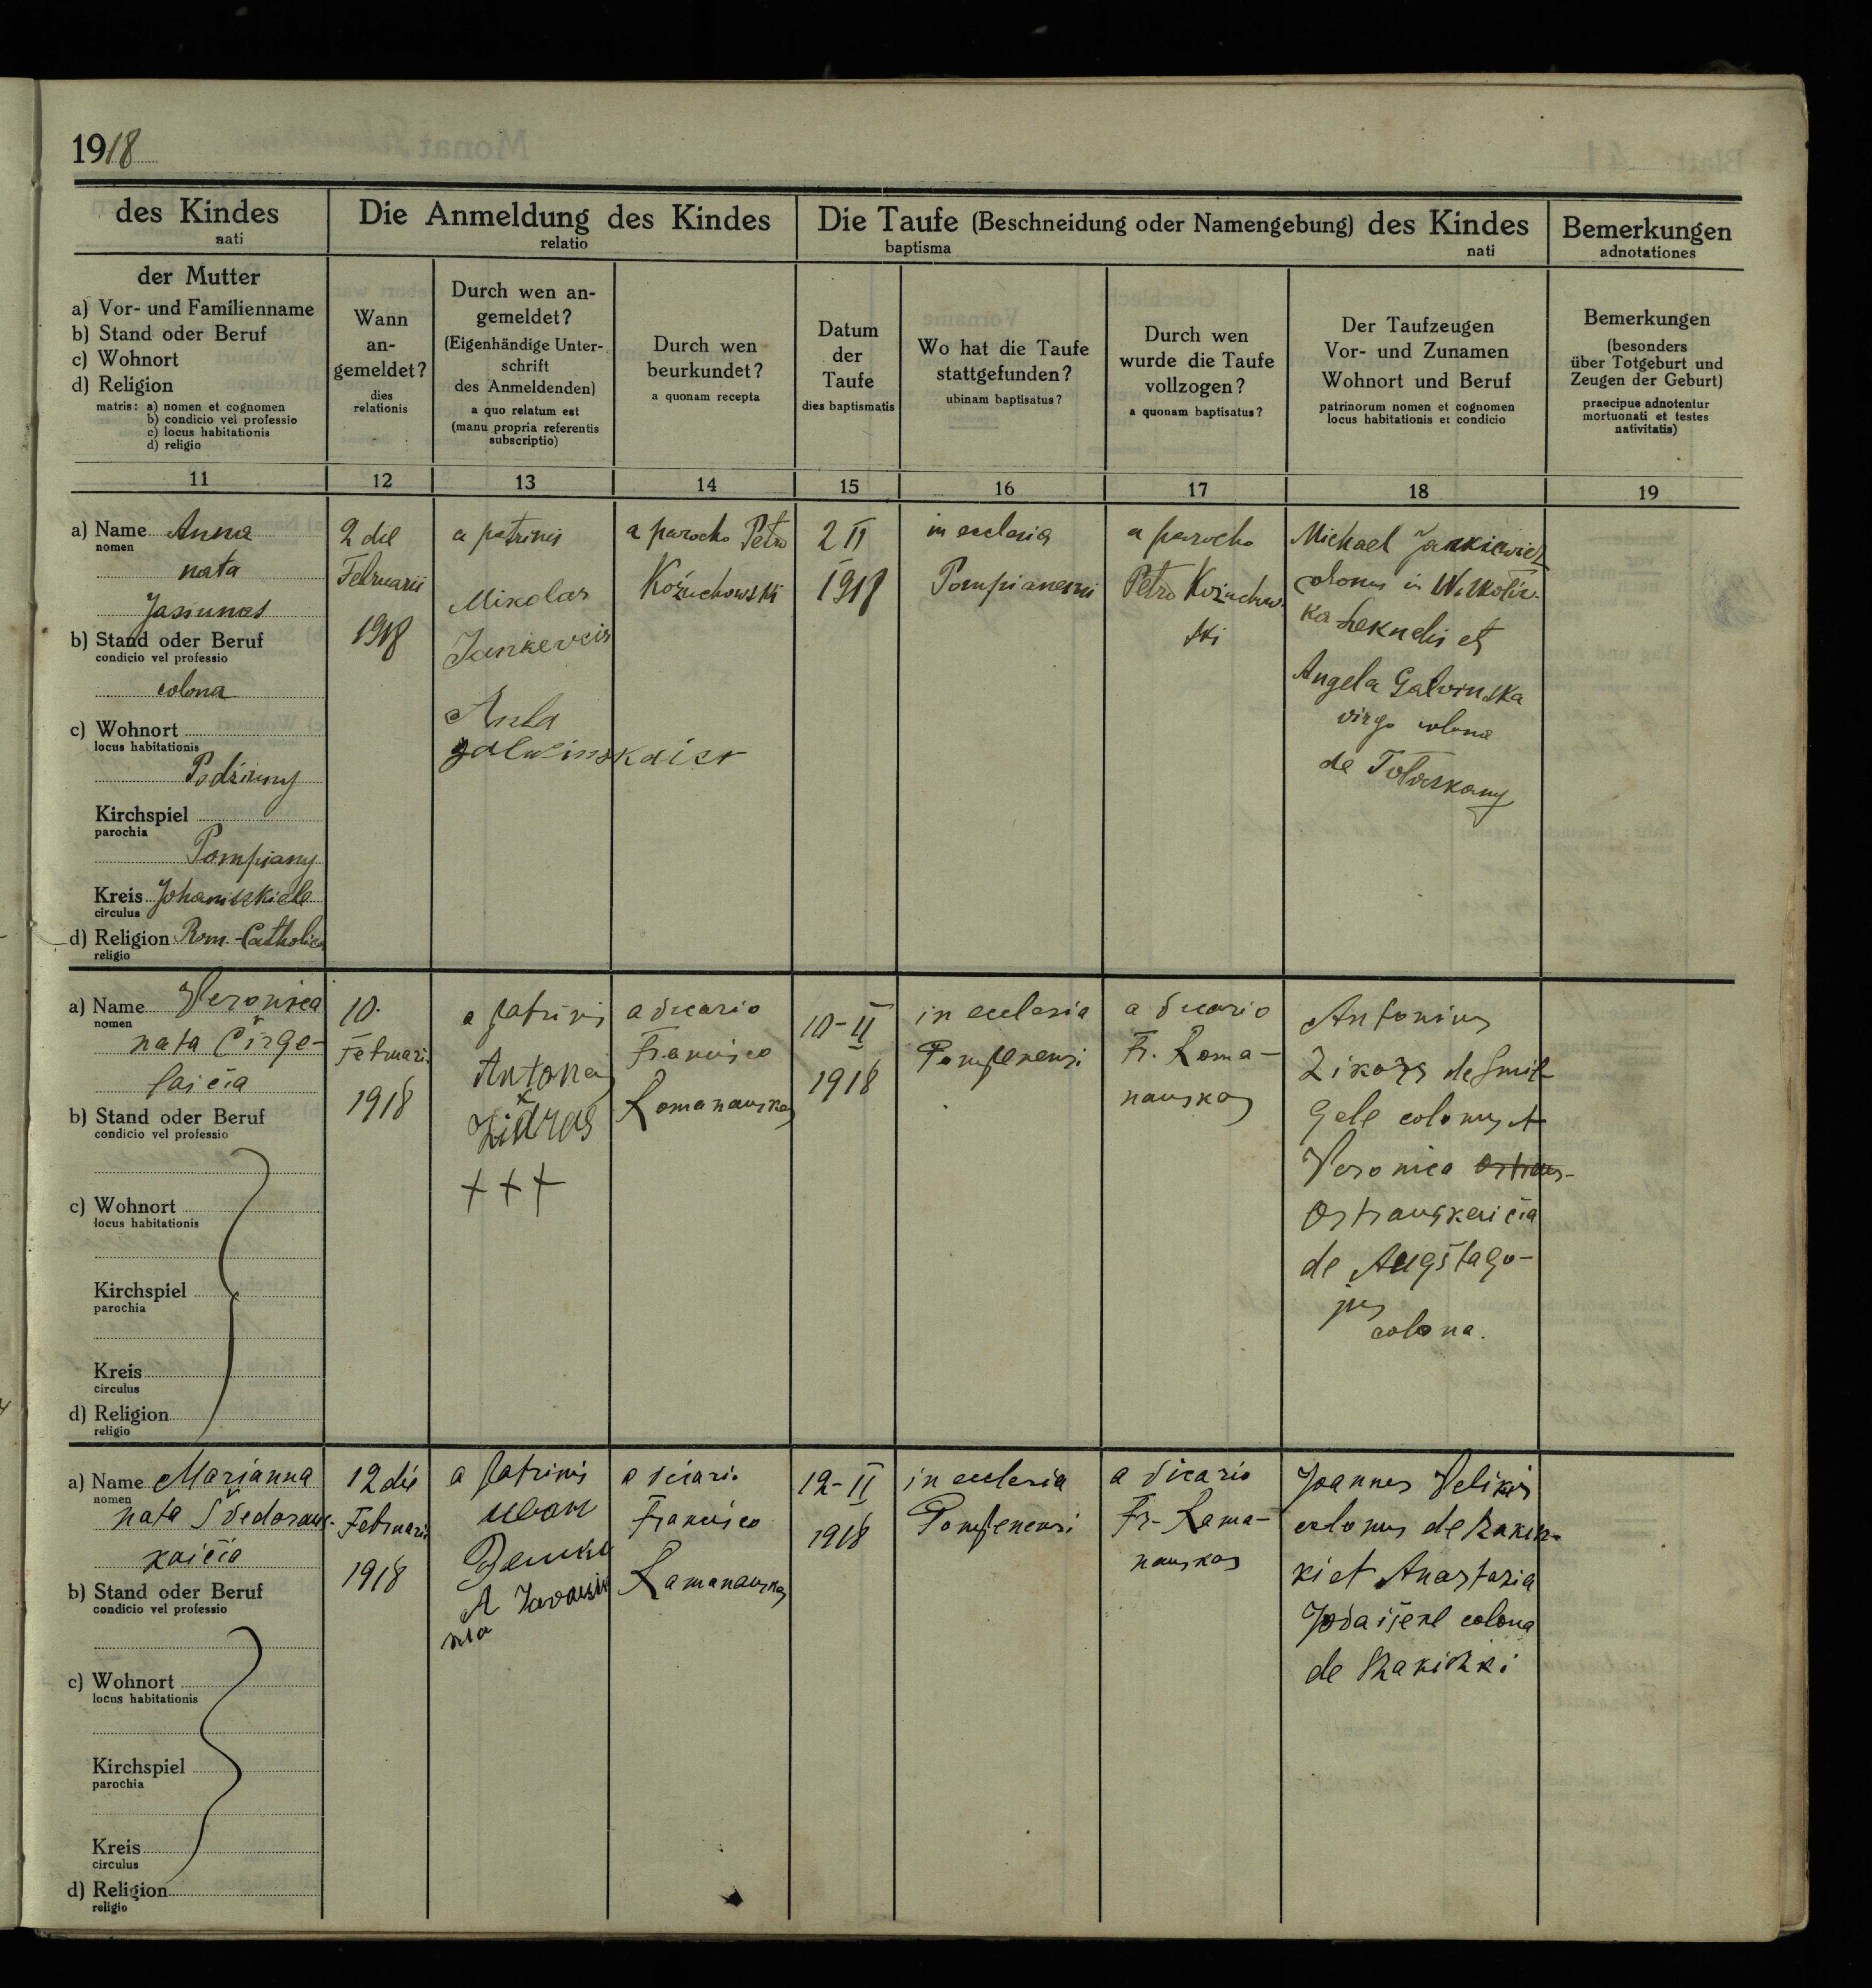 1918
des Kindes
nati
Die Anmeldung des Kindes
relatio
Die Taufe (Beschneidung oder Namengebung) des Kindes
baptisma nati
Bemerkungen
adnotationes
der Mutter
a) Vor- und Familienname
b) Stand oder Beruf
c) Wohnort
d) Religion
matris: a) nomen et cognomen
b) condicio vel professio
c) locus habitationis
d) religio
Wann
an-
gemeldet?
dies
relationis
Durch wen an-
gemeldet?
(Eigenhändige Unter-
schrift
des Anmeldenden)
a quo relatum est
(manu propria referentis
subscriptio)
Durch wen
beurkundet?
a quonam recepta
Datum
der
Taufe
dies baptismatis
Wo hat die Taufe
stattgefunden?
ubinam baptisatus?
Durch wen
wurde die Taufe
vollzogen?
a quonam baptisatus?
Der Taufzeugen
Vor- und Zunamen
Wohnort und Beruf
patrinorum nomen et cognomen
locus habitationis et condicio
Bemerkungen
(besonders
über Totgeburt und
Zeugen der Geburt)
praecipue adnotentur
mortuonati et testes
nativitatis)
11 12 13 14 15 16 17 18 19
a) Name Anna
nomen
nata
Jasiunas
b) Stand oder Beruf
condicio vel professio
colona
c) Wohnort
locus habitationis
Podziuny
Kirchspiel
parochia
Pompiany
Kreis Johaniszkiele
circulus
d) Religion Rom.-Catholica
religio
2 die
Februarii
1918
a patrinis
Mikolas
Jankevcis
Anla
galwinskaier
a parocho Petro
Kożuchowski
2 II
1918
in ecclesia
Pompianensi
a parocho
Petro Kożuchow-
ski
Michael Jankiewicz
colonus in
et
Angela Galvinska
virgo colona
de Toloczkany
a) Name Veronica
nomen
nata Čirge-
laičia
b) Stand oder Beruf
condicio vel professio
c) Wohnort
locus habitationis
Kirchspiel
parochia
Kreis
circulus
d) Religion
religio
10.
Februarii
1918
a patrinis
Antonas
Židras
+++
a vicario
Francisco
Ramanauskas
10-II
1918
in ecclesia
Pompenensi
a vicario
Fr. Rama-
nauskas
Antonius
de Smil-
gele colonus et
Veronica
Ostrauskaičia
de Augštago-
jus
colona.
a) Name Marianna
nomen
nata Švedaraus-
kaičia
b) Stand oder Beruf
condicio vel professio
c) Wohnort
locus habitationis
Kirchspiel
parochia
Kreis
circulus
d) Religion
religio
12 die
Februarii
1918
a patrinis
a vicario
Francisco
Ramanauskas
12-II
1918
in ecclesia
Pompenensi
a vicario
Fr. Rama-
nauskas
Joannes Velikis
colonus de
ki et Anastasia
colona
de